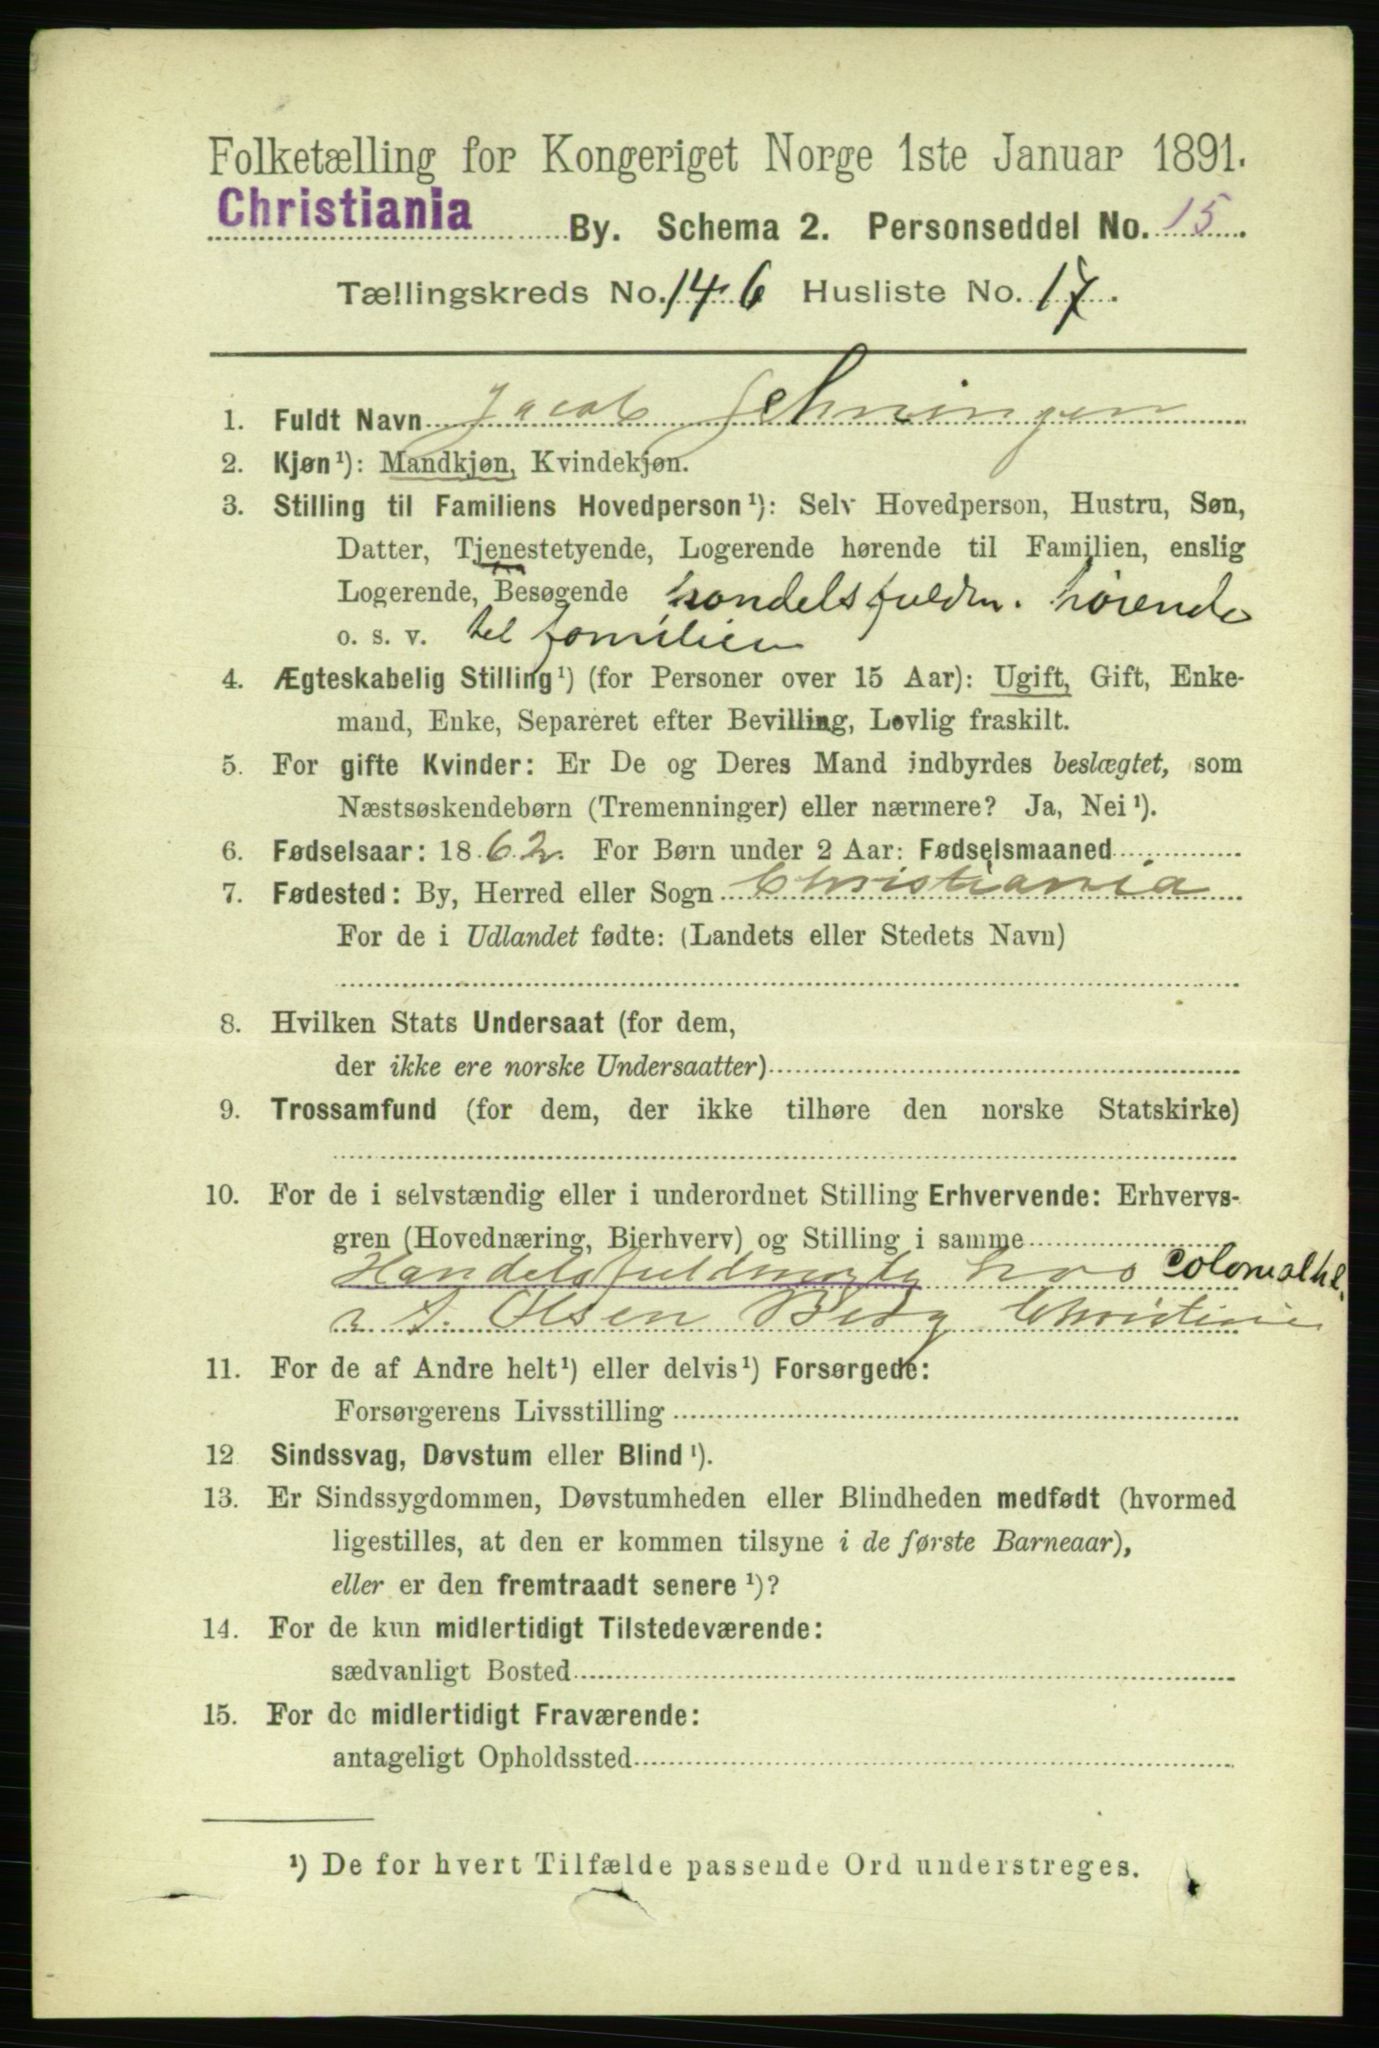 Folketælling for Kongeriget Norge 1ste Januar 1891.
Christiania By. Schema 2. Personseddel No. 15.
Tællingskreds No. 146 Husliste No. 17.
1. Fuldt Navn Jacob
2. Kjøn¹): Mandkjøn, Kvindekjøn.
3. Stilling til Familiens Hovedperson¹): Selv Hovedperson, Hustru, Søn,
Datter, Tjenestetyende, Logerende hørende til Familien, enslig
Logerende, Besøgende handelsfuldm. hørende
o. s. v. til familien
4. Ægteskabelig Stilling¹) (for Personer over 15 Aar): Ugift, Gift, Enke-
mand, Enke, Separeret efter Bevilling, Lovlig fraskilt.
5. For gifte Kvinder: Er De og Deres Mand indbyrdes beslægtet, som
Næstsøskendebørn (Tremenninger) eller nærmere? Ja, Nei¹).
6. Fødselsaar: 1862. For Børn under 2 Aar: Fødselsmaaned
7. Fødested: By, Herred eller Sogn Christiania
For de i Udlandet fødte: (Landets eller Stedets Navn)
8. Hvilken Stats Undersaat (for dem,
der ikke ere norske Undersaatter)
9. Trossamfund (for dem, der ikke tilhøre den norske Statskirke)
10. For de i selvstændig eller i underordnet Stilling Erhvervende: Erhvervs-
gren (Hovednæring, Bierhverv) og Stilling i samme
Handelsfuldmægtig hos Colonialhl.
Olsen Berg
11. For de af Andre helt¹) eller delvis¹) Forsørgede:
Forsørgerens Livsstilling
12 Sindssvag, Døvstum eller Blind¹).
13. Er Sindssygdommen, Døvstumheden eller Blindheden medfødt (hvormed
ligestilles, at den er kommen tilsyne i de første Barneaar),
eller er den fremtraadt senere¹)?
14. For de kun midlertidigt Tilstedeværende:
sædvanligt Bosted
15. For de midlertidigt Fraværende:
antageligt Opholdssted
¹) De for hvert Tilfælde passende Ord understreges.